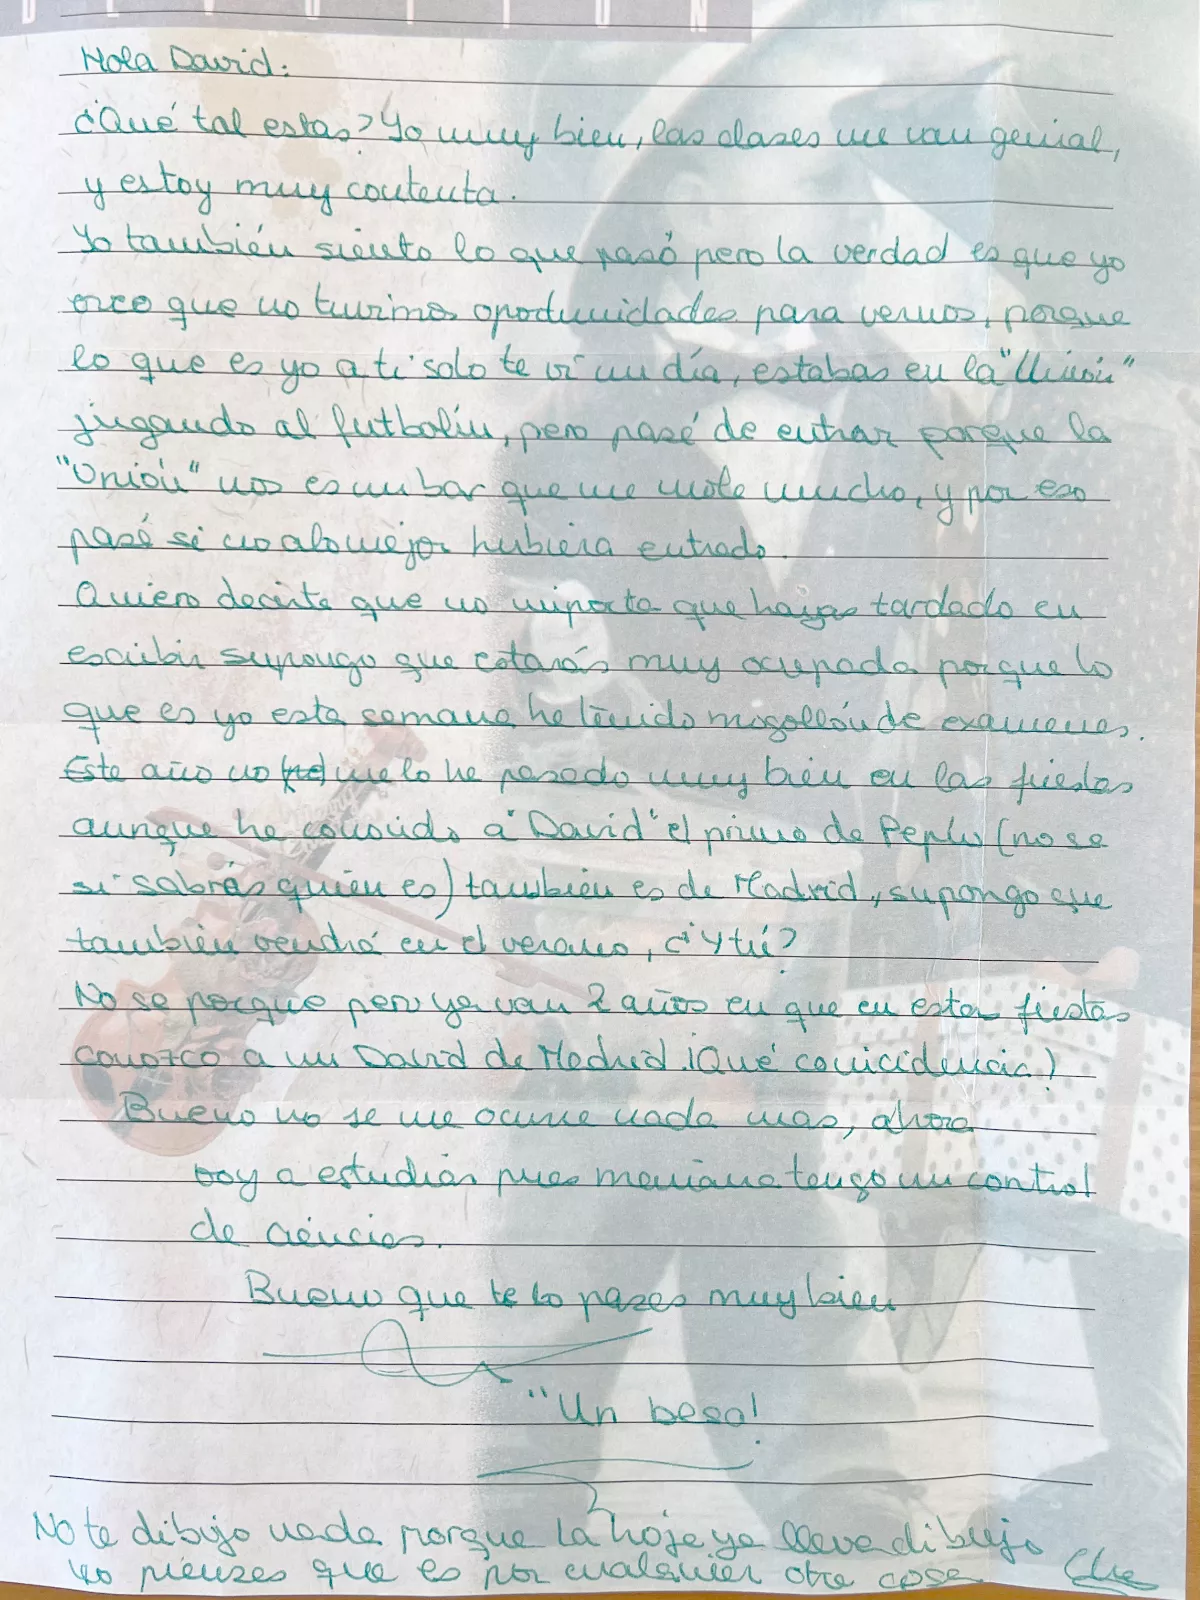 DEVOTION
Hola David:
¿Qué tal estas? Yo muy bien, las clases me van genial,
y estoy muy contenta.
Yo también siento lo que pasó pero la verdad es que yo
creo que no tuvimos oportunidades para vernos, porque
lo que es yo a ti solo te vi un día, estabas en la "Unión"
jugando al futbolín, pero pasé de entrar porque la
"Unión" nos es un bar que me mole mucho, y por eso
pasé si no alomejor hubiera entrado.
Quiero decirte que no importa que hayas tardado en
escribir supongo que estarás muy ocupado porque lo
que es yo esta semana he tenido mogollón de examenes.
Este año no (he) me lo he pasado muy bien en las fiestas
aunque he conocido a "David" el primo de Peplu (no se
si sabrás quien es) también es de Madrid, supongo que
también vendrá en el verano, ¿Y tú?
No se porque pero ya van 2 años en que en estas fiestas
conozco a un David de Madrid. ¡Qué conicidencia!
Bueno no se me ocurre nada mas, ahora
voy a estudiar pues mañana tengo un control
de ciencias.
Bueno que te lo pases muy bien
"Un beso!
No te dibujo nada porque la hoja ya lleva dibujo
no pienses que es por cualquier otra cosa